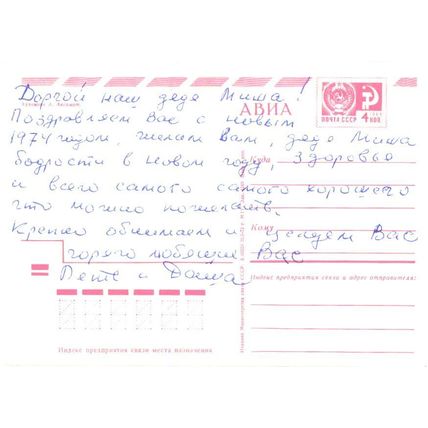 Доргой наш деда Миша!
Художник А. 
АВИА
ПОЧТА СССР 4 КОП
Поздравляем Вас с новым
1974 годом, желаем Вам, деда Миша
бодрости в новом году, здоровье
Куда
и всего самого самого хорошего
что можно пожелать.
Кому
Крепко обнимаем и целуем Вас
горячо любящие Вас
Пете и Даша
Индекс предприятия связи и адрес отправителя:
Индекс предприятия связи места назначения